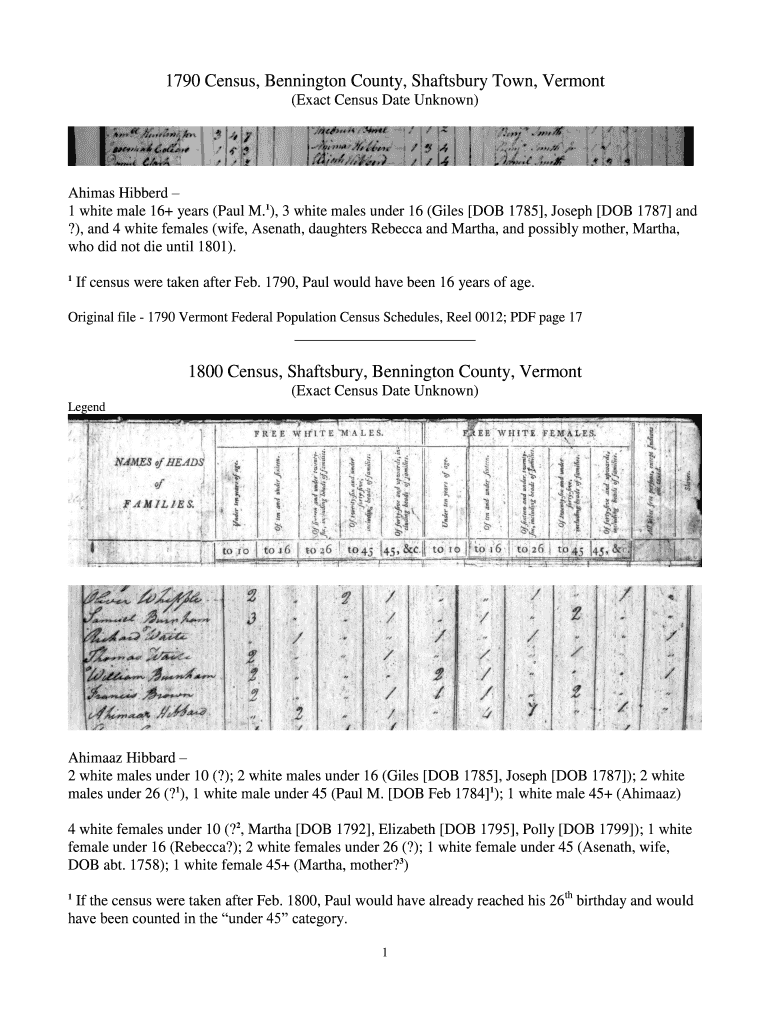 1790 Census, Bennington County, Shaftsbury Town, Vermont
(Exact Census Date Unknown)
3 4 7
1 1 2
Benj Smith
1 5 3
1 3 4
1 1 4
Ahimas Hibberd –
1 white male 16+ years (Paul M.¹), 3 white males under 16 (Giles [DOB 1785], Joseph [DOB 1787] and
?), and 4 white females (wife, Asenath, daughters Rebecca and Martha, and possibly mother, Martha,
who did not die until 1801).
¹ If census were taken after Feb. 1790, Paul would have been 16 years of age.
Original file - 1790 Vermont Federal Population Census Schedules, Reel 0012; PDF page 17
1800 Census, Shaftsbury, Bennington County, Vermont
(Exact Census Date Unknown)
Legend
FREE WHITE MALES. FREE WHITE FEMALES.
NAMES of HEADS
of
FAMILIES.
Under ten years of age.
Of ten and under sixteen.
Of sixteen and under twenty-six, including heads of families.
Of twenty-six and under forty-five, including heads of families.
Of forty-five and upwards, including heads of families.
Under ten years of age.
Of ten and under sixteen.
Of sixteen and under twenty-six, including heads of families.
Of twenty-six and under forty-five, including heads of families.
Of forty-five and upwards, including heads of families.
to 10 to 16 to 26 to 45 45, &c. to 10 to 16 to 26 to 45 45, &c.
Oliver Whipple 2 2 1 1 1
Samuel Burnham 3 1 1 2
Richard Waite 1 1 1 1 1
Thomas Waite 2 1 1
William Burnham 2 1 2 1 1
Francis Brown 2 1 1 1 2
Ahimaaz Hibbard 2 1 4 1
Ahimaaz Hibbard –
2 white males under 10 (?); 2 white males under 16 (Giles [DOB 1785], Joseph [DOB 1787]); 2 white
males under 26 (?¹), 1 white male under 45 (Paul M. [DOB Feb 1784]¹); 1 white male 45+ (Ahimaaz)
4 white females under 10 (?², Martha [DOB 1792], Elizabeth [DOB 1795], Polly [DOB 1799]); 1 white
female under 16 (Rebecca?); 2 white females under 26 (?); 1 white female under 45 (Asenath, wife,
DOB abt. 1758); 1 white female 45+ (Martha, mother?³)
¹ If the census were taken after Feb. 1800, Paul would have already reached his 26th birthday and would
have been counted in the “under 45” category.
1